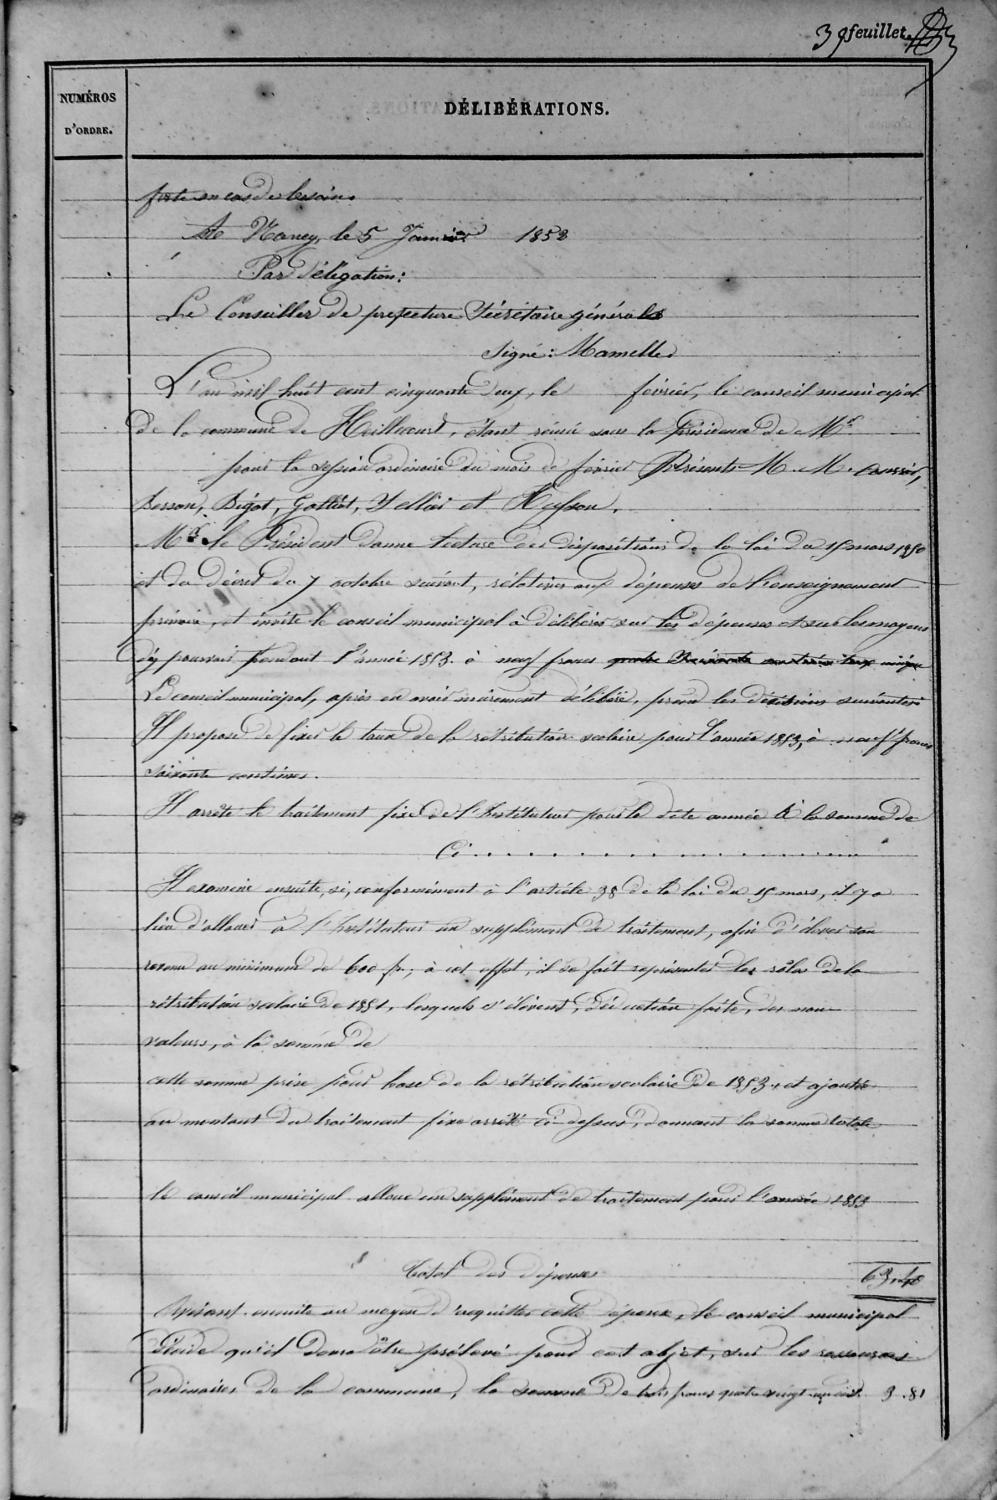 39 feuillet
NUMÉROS
D'ORDRE.
DÉLIBÉRATIONS.
forte en cas de besoin.
Nancy, le 5 Janvier 1852
Par délégation:
Le Conseiller de prefecture Sécrétaire générale
Signé: Mamelle
L'an mil huit cent cinquante deux, le février, le conseil municipal
de la commune de Heillecourt, étant réuni sous la Présidence de Mr
pour la session ordinaire du mois de février Présents M. M.
Besson, Bigot, Gottiét, et Husson.
Mr le Président donne lecture des dispositions de la loi du 15 mars 1850
et du décret du 7 octobre suivant, rélatives aux dépenses de l'enseignement
primaire, et invite le conseil municipal à délibérer sur les dépenses et sur les moyens
d'y pourvoir pendant l'année 1853. à neuf francs
Le conseil municipal, après en avoir murement délibéré, prend les décisions suivantes
Il propose de fixer le taux de la rétribution scolaire pour l'année 1853, à neuf francs
soixante centimes.
Il arrête le traitement fixe de l'Instituteur pour la dite année à la somme de
Ci . . . . . . . . . . . . . . . . . . . .
Il examine ensuite, si, conformément à l'article 38 de la loi du 15 mars, il y a
lieu d'allouer à l'Instituteur un supplément de traitement, afin d'élever son
revenu au minimum de 600 fr; à cet effet, il se fait représenter les rôles de la
rétribution scolaire de 1851, lesquels s'élèvent, déduction faite, des non
valeurs, à la somme de
cette somme prise pour base de la rétribution scolaire de 1853, et ajoutée
au montant du traitement fixe arrêté ci-dessus, donnant la somme totale
le conseil municipal alloue un supplément de traitement pour l'année 1853
Total des dépenses 63.40
Avisant ensuite au moyen d'acquitter cette dépense, le conseil municipal
décide qu'il devra être prélevé pour cet objet, sur les ressources
ordinaires de la commune, la somme de trois francs quatre vingt un cts. 3.81